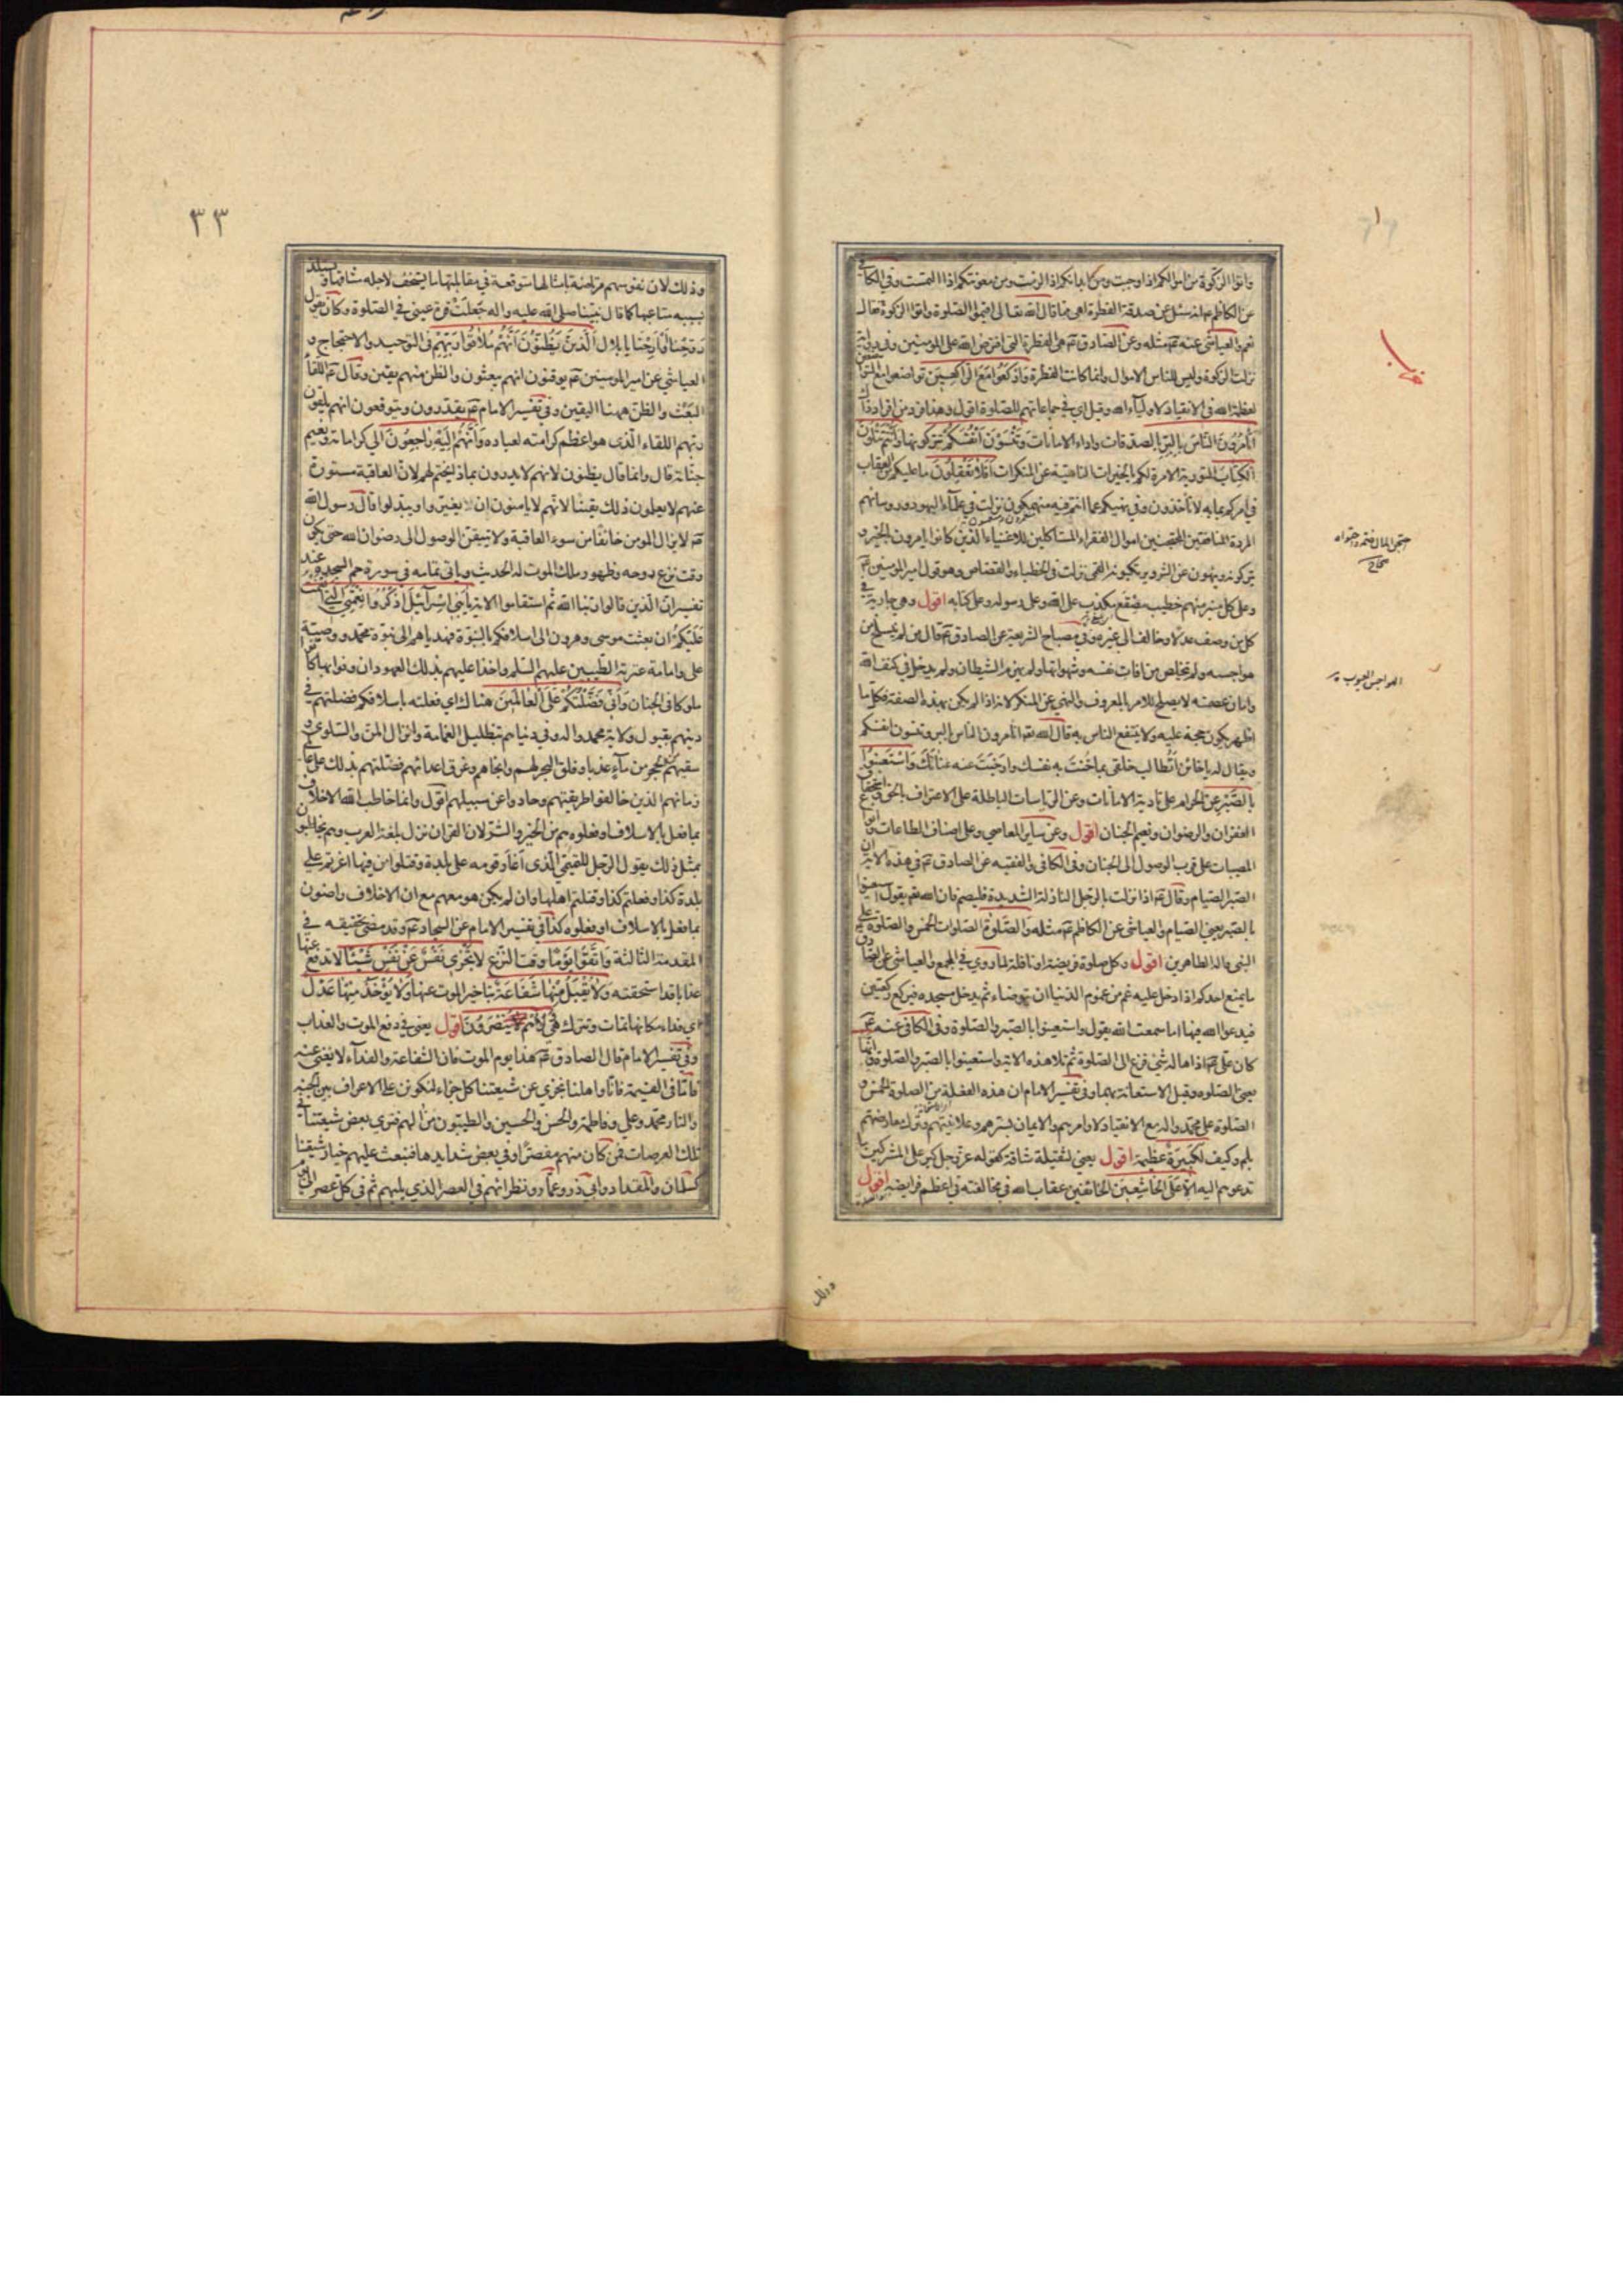 واتوا الزكوة من اموالكم اذا وجبت ومن ابدانكم اذا لزمت ومن معونتكم اذا التمست وفي الكافي
عن الكاظم انه سئل عن صدقة الفطرة اهي مما قال الله تعالى اقيموا الصلوة واتوا الزكوة فقال
نعم والعياشي عنه ع مثله وعن الصادق ع هي الفطرة التي افترض الله على المومنين وفي رواية
نزلت الزكوة وليس للناس الاموال وانما كانت الفطرة واركعوا مع الراكعين تواضعوا مع المتواضعين
لعظمة الله في الانقياد لاولياء الله وقيل اي في جماعاتهم للصلوة اقول وهذا فرد من افراد ذاك
اتأمرون الناس بالبر بالصدقات واداء الامانات وتنسون انفسكم تتركونها وانتم تتلون
الكتاب التورية الامرة لكم بالخيرات الناهية عن المنكرات افلا تعقلون ما عليكم من العقاب
في امركم بما به لا تأخذون وفي نهيكم عما انتم فيه منهمكون نزلت في علماء اليهود ورؤسائهم
المردة المنافقين المحتجنين اموال الفقراء المستاكلين للاغنياء الذين كانوا يامرون بالخير و
يتركونه وينهون عن الشر ويرتكبونه القمي نزلت في الخطباء والقصاص وهو قول امير المومنين ع
وعلى كل منبر منهم خطيب مصقع يكذب على الله وعلى رسوله وعلى كتابه اقول وهي جارية في
كل من وصف عدلا وخالف الى غيره وفي مصباح الشريعة عن الصادق ع قال من لم ينسلخ من
هواجسه ولم يتخلص من افات نفسه وشهواتها ولم يهزم الشيطان ولم يدخل في كنف الله
وامان عصمته لا يصلح للامر بالمعروف والنهي عن المنكر لانه اذا لم يكن بهذه الصفة فكل ما
اظهر يكون حجة عليه ولا ينتفع الناس به قال الله تعه اتأمرون الناس بالبر وتنسون انفسكم
ويقال له يا خائن اتطالب خلقي بما خنت به نفسك وارخيت عنه عنانك واستعينوا
بالصبر عن الحرام على تادية الامانات وعن الرياسات الباطلة على الاعتراف بالحق واستحقاق
الغفران والرضوان ونعيم الجنان اقول وعن ساير المعاصي وعلى اصناف الطاعات وانواع
المصيبات على قرب الوصول الى الجنان وفي الكافي والفقيه عن الصادق ع في هذه الاية ان
الصبر الصيام وقال ع اذا نزلت بالرجل النازلة الشديدة فليصم فان الله تعه يقول استعينوا
بالصبر يعني الصيام والعياشي عن الكاظم ع مثله والصلوة الصلوات الخمس والصلوة على
النبي واله الطاهرين اقول وكل صلوة فريضة او نافلة لما روي في المجمع والعياشي عن الصادق
ما يمنع احدكم اذا دخل عليه غم من غموم الدنيا ان يتوضاء ثم يدخل مسجده فيركع ركعتين
فيدعو الله فيها اما سمعت الله يقول واستعينوا بالصبر والصلوة وفي الكافي عنه ع
كان علي ع اذا هاله شئ فزع الى الصلوة ثم تلا هذه الاية واستعينوا بالصبر والصلوة وانها
يعني الصلوة وقيل الاستعانة بهما وفي تفسير الامام ان هذه الفعلة من الصلوة الخمس و
الصلوة على محمد واله مع الانقياد لاوامرهم والايمان بسرهم وعلانيتهم وترك معارضتهم
بلم وكيف لكبيرة عظيمة اقول يعني لثقيلة شاقة كقوله عز وجل كبر على المشركين ما
تدعوهم اليه الا على الخاشعين الخائفين عقاب الله في مخالفته في اعظم فرايضه اقول
وذلك
احتجن المال ضمه واحتواه
صحاح
الهواجس العيوب
٣٣
وذلك لان نفوسهم مرتاضة بامثالها متوقعة في مقابلتها ما يستخف لاجله مشاقها ويستلذ
بسببه متاعبها كما قال نبينا صلى الله عليه واله جعلت قرة عيني في الصلوة وكان يقول
روحنا او ارحنا يا بلال الذين يظنون انهم ملاقوا ربهم في التوحيد والاحتجاج و
العياشي عن امير المومنين ع يوقنون انهم يبعثون والظن منهم يقين وقال ع اللقاء
البعث والظن ههنا اليقين وفي تفسير الامام ع يقدرون ويتوقعون انهم يلقون
ربهم اللقاء الذي هو اعظم كرامته لعباده وانهم اليه راجعون الى كراماته ونعيم
جناته قال وانما قال يظنون لانهم لا يدرون بماذا يختم لهم لان العاقبة مستورة
عنهم لا يعلمون ذلك يقينا لانهم لا يامنون ان يغيروا ويبدلوا قال رسول الله
ص لا يزال المومن خائفا من سوء العاقبة ولا يتيقن الوصول الى رضوان الله حتى يكون
وقت نزع روحه وظهور ملك الموت له الحديث وياتي تمامه في سورة حم السجدة عند
تفسير ان الذين قالوا ربنا الله ثم استقاموا الاية يا بني اسرائيل اذكروا نعمتي التي انعمت
عليكم ان بعثت موسى وهرون الى اسلافكم بالنبوة فهدياهم الى نبوة محمد ووصية
علي وامامة عترته الطيبين عليهم السلم واخذا عليهم بذلك العهود ان وفوا بها كانوا
ملوكا في الجنان واني فضلتكم على العالمين هناك اي فعلته باسلافكم فضلتهم في
دينهم بقبول ولاية محمد واله وفي دنياهم بتظليل الغمامة وانزال المن والسلوى و
سقيهم من حجر ماء عذبا وفلق البحر لهم وانجاهم وغرق اعدائهم فضلتهم بذلك على عالمي
زمانهم الذين خالفوا طريقتهم وحادوا عن سبيلهم اقول وانما خاطب الله الاخلاف
بما فعل بالاسلاف او فعلوه هم من الخير والشر لان القران نزل بلغة العرب وهم يتخاطبون
بمثل ذلك يقول الرجل للتميمي الذي اغار قومه على بلدة وقتلوا من فيها اغرتم على
بلدة كذا وفعلتم كذا وقتلتم اهلها وان لم يكن هو معهم مع ان الاخلاف راضون
بما فعل بالاسلاف او فعلوه كذا في تفسير الامام عن السجاد ع وقد مضى تحقيقه في
المقدمة الثالثة واتقوا يوما وقت النزع لا تجزي نفس عن نفس شيئا لا تدفع عنها
عذابا قد استحقته ولا يقبل منها شفاعة بتاخير الموت عنها ولا يؤخذ منها عدل
اي فداء مكانها تمات وتترك هي ولا هم ينصرون اقول يعني في دفع الموت والعذاب
وفي تفسير الامام قال الصادق ع هذا يوم الموت فان الشفاعة والفداء لا يغني عنه
فاما في القيمة فانا واهلنا نجزي عن شيعتنا كل جزاء لنكونن على الاعراف بين الجنة
والنار محمد وعلي وفاطمة والحسن والحسين والطيبون من الهم فنرى بعض شيعتنا في
تلك العرصات فمن كان منهم مقصرا وفي بعض شدايدها فنبعث عليهم خيار شيعتنا
كسلمان والمقداد وابي ذر وعمار ونظرائهم في العصر الذي يليهم ثم في كل عصر الى